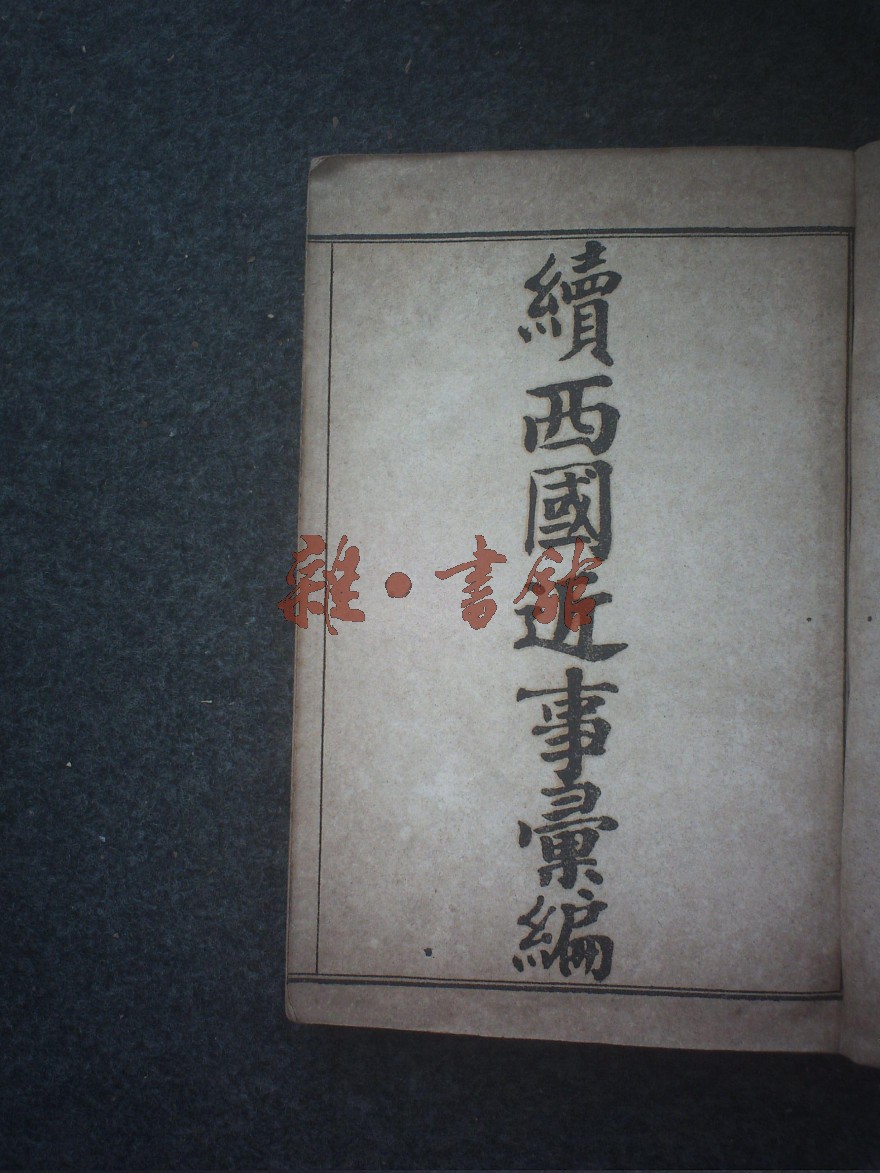 續西國近事彙編
雜·書館